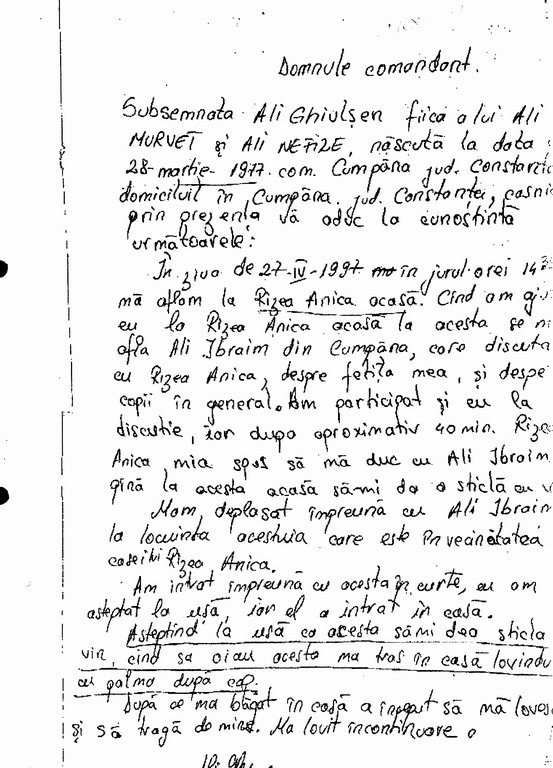 Domnule comandant.
Subsemnata Ali Ghiulsen fiica a lui Ali
MURVET și Ali NEFIZE, născută la data
28-martie-1977. com. Cumpăna jud. Constanța
domiciliul în Cumpăna. jud. Constanței, casni
prin prezența vă aduc la cunoștință
următoarele:
În ziua de 27-IV-1997 în jurul orei 14
mă aflam la Rizea Anica acasă. Cînd am aju
eu la Rizea Anica acasă la acesta se mi
afla Ali Ibraim din Cumpăna, care discuta
cu Rizea Anica, despre fetița mea, și despe
copii în general. Am participat și eu la
discuție, iar dupa aproximativ 40 min. Rize
Anica, mia spus să mă duc cu Ali Ibraim
pînă la acesta acasa să-mi dea o sticlă cu v
Mam, deplasat împreună cu Ali Ibraim
la locuința acestuia care este în vecinătatea
casei lui Rizea Anica.
Am intrat împreună cu acesta în curte, eu am
asteptat la ușă, iar el a intrat în casă.
Așteptînd la ușă ca acesta sămi dea sticla
vin, cînd acesta ma tras în casă lovindu
cu palma după cap.
După ce ma băgat în casă a început să mă loveas
și să tragă de mine. Ma lovit încontinuare